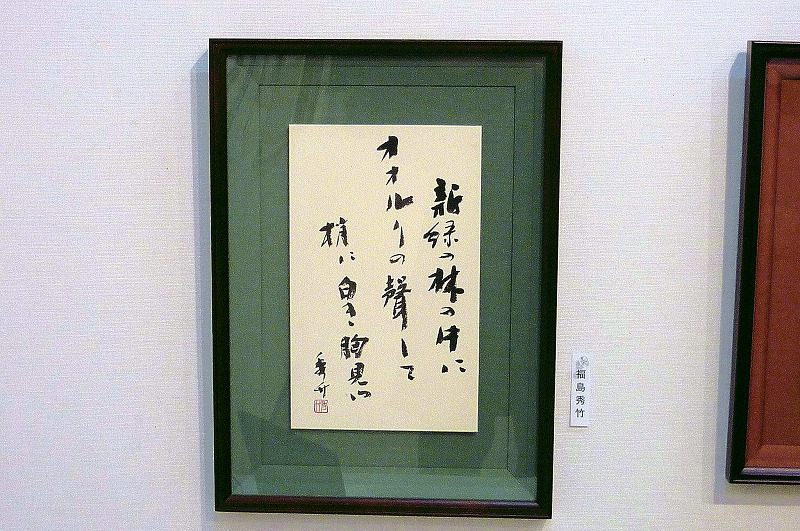 新緑の林の中に
オオルリの聲して
梢に白き胸見ゆ
秀竹
福島秀竹